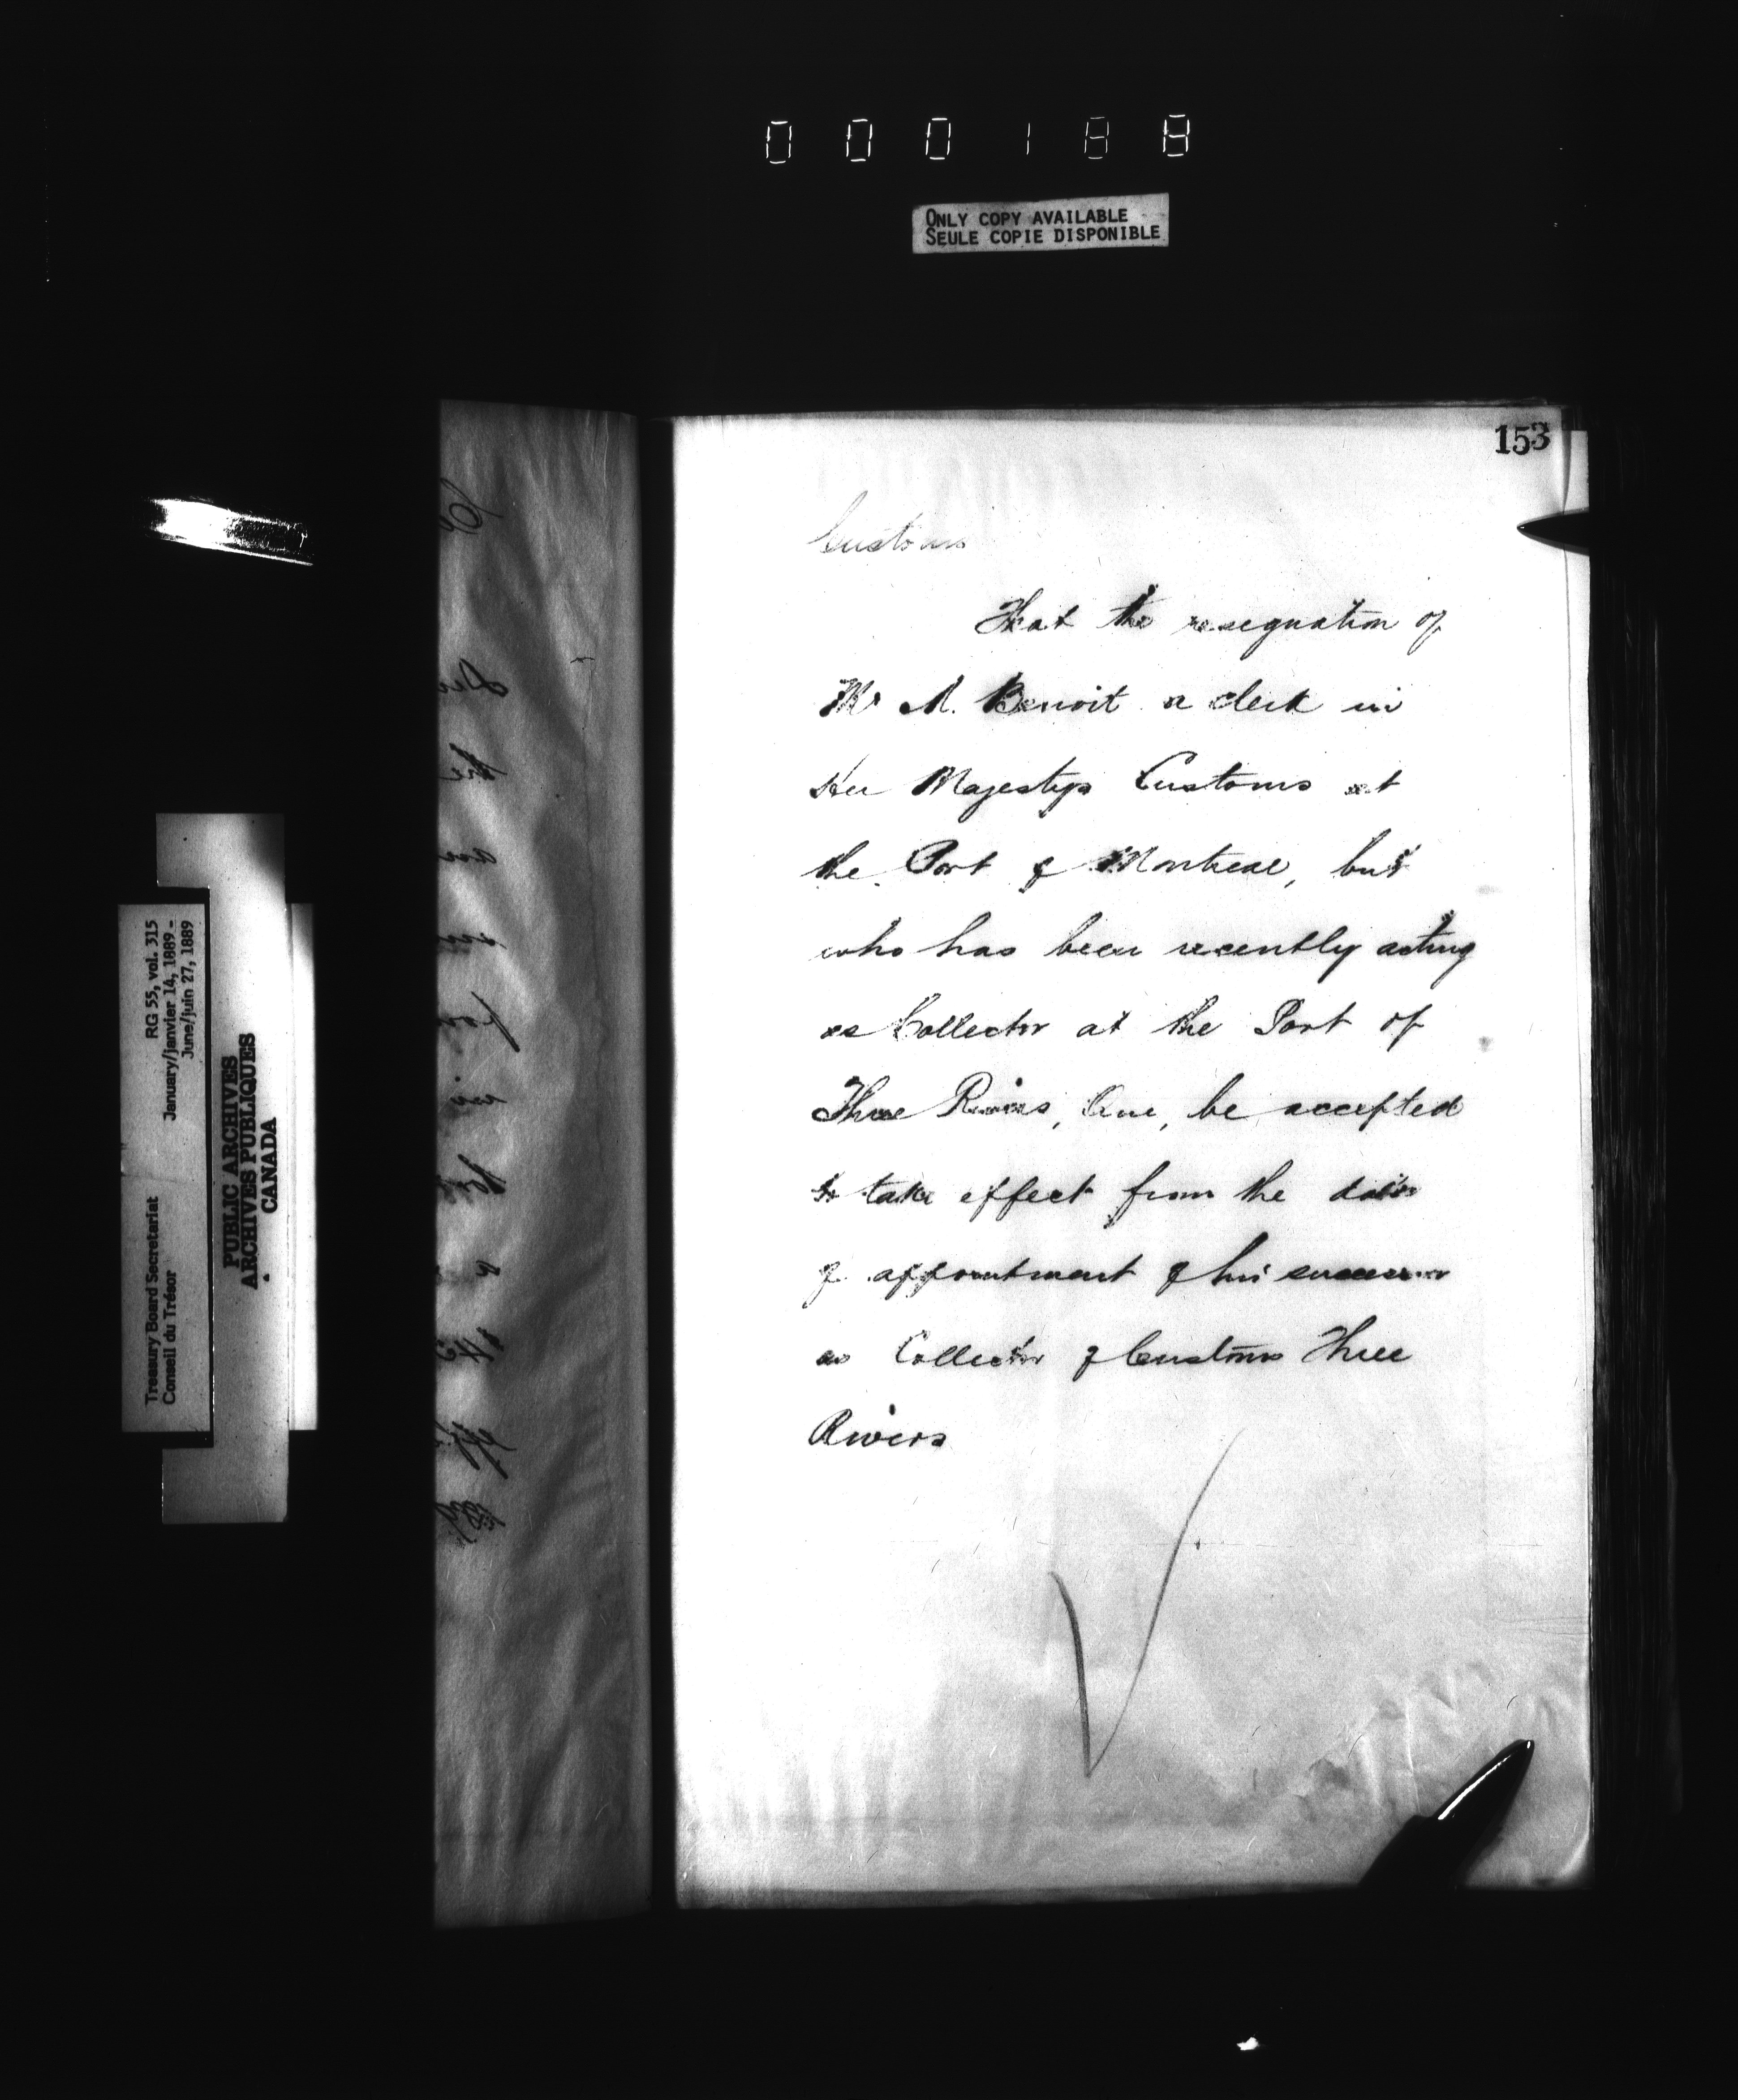 000188
ONLY COPY AVAILABLE
SEULE COPIE DISPONIBLE
153
Customs
That the resignation of
Mr A. Benoit a clerk in
Her Majestys Customs at
the Port of Montreal, but
who has been recently acting
as Collector at the Port of
Three Rivers, Que, be accepted
to take effect from the date
of appointment of his successor
as Collector of Customs Three
Rivers
Treasury Board Secretariat RG 55, vol. 315
Conseil du Trésor January/janvier 14, 1889 -
June/juin 27, 1889
PUBLIC ARCHIVES
ARCHIVES PUBLIQUES
CANADA